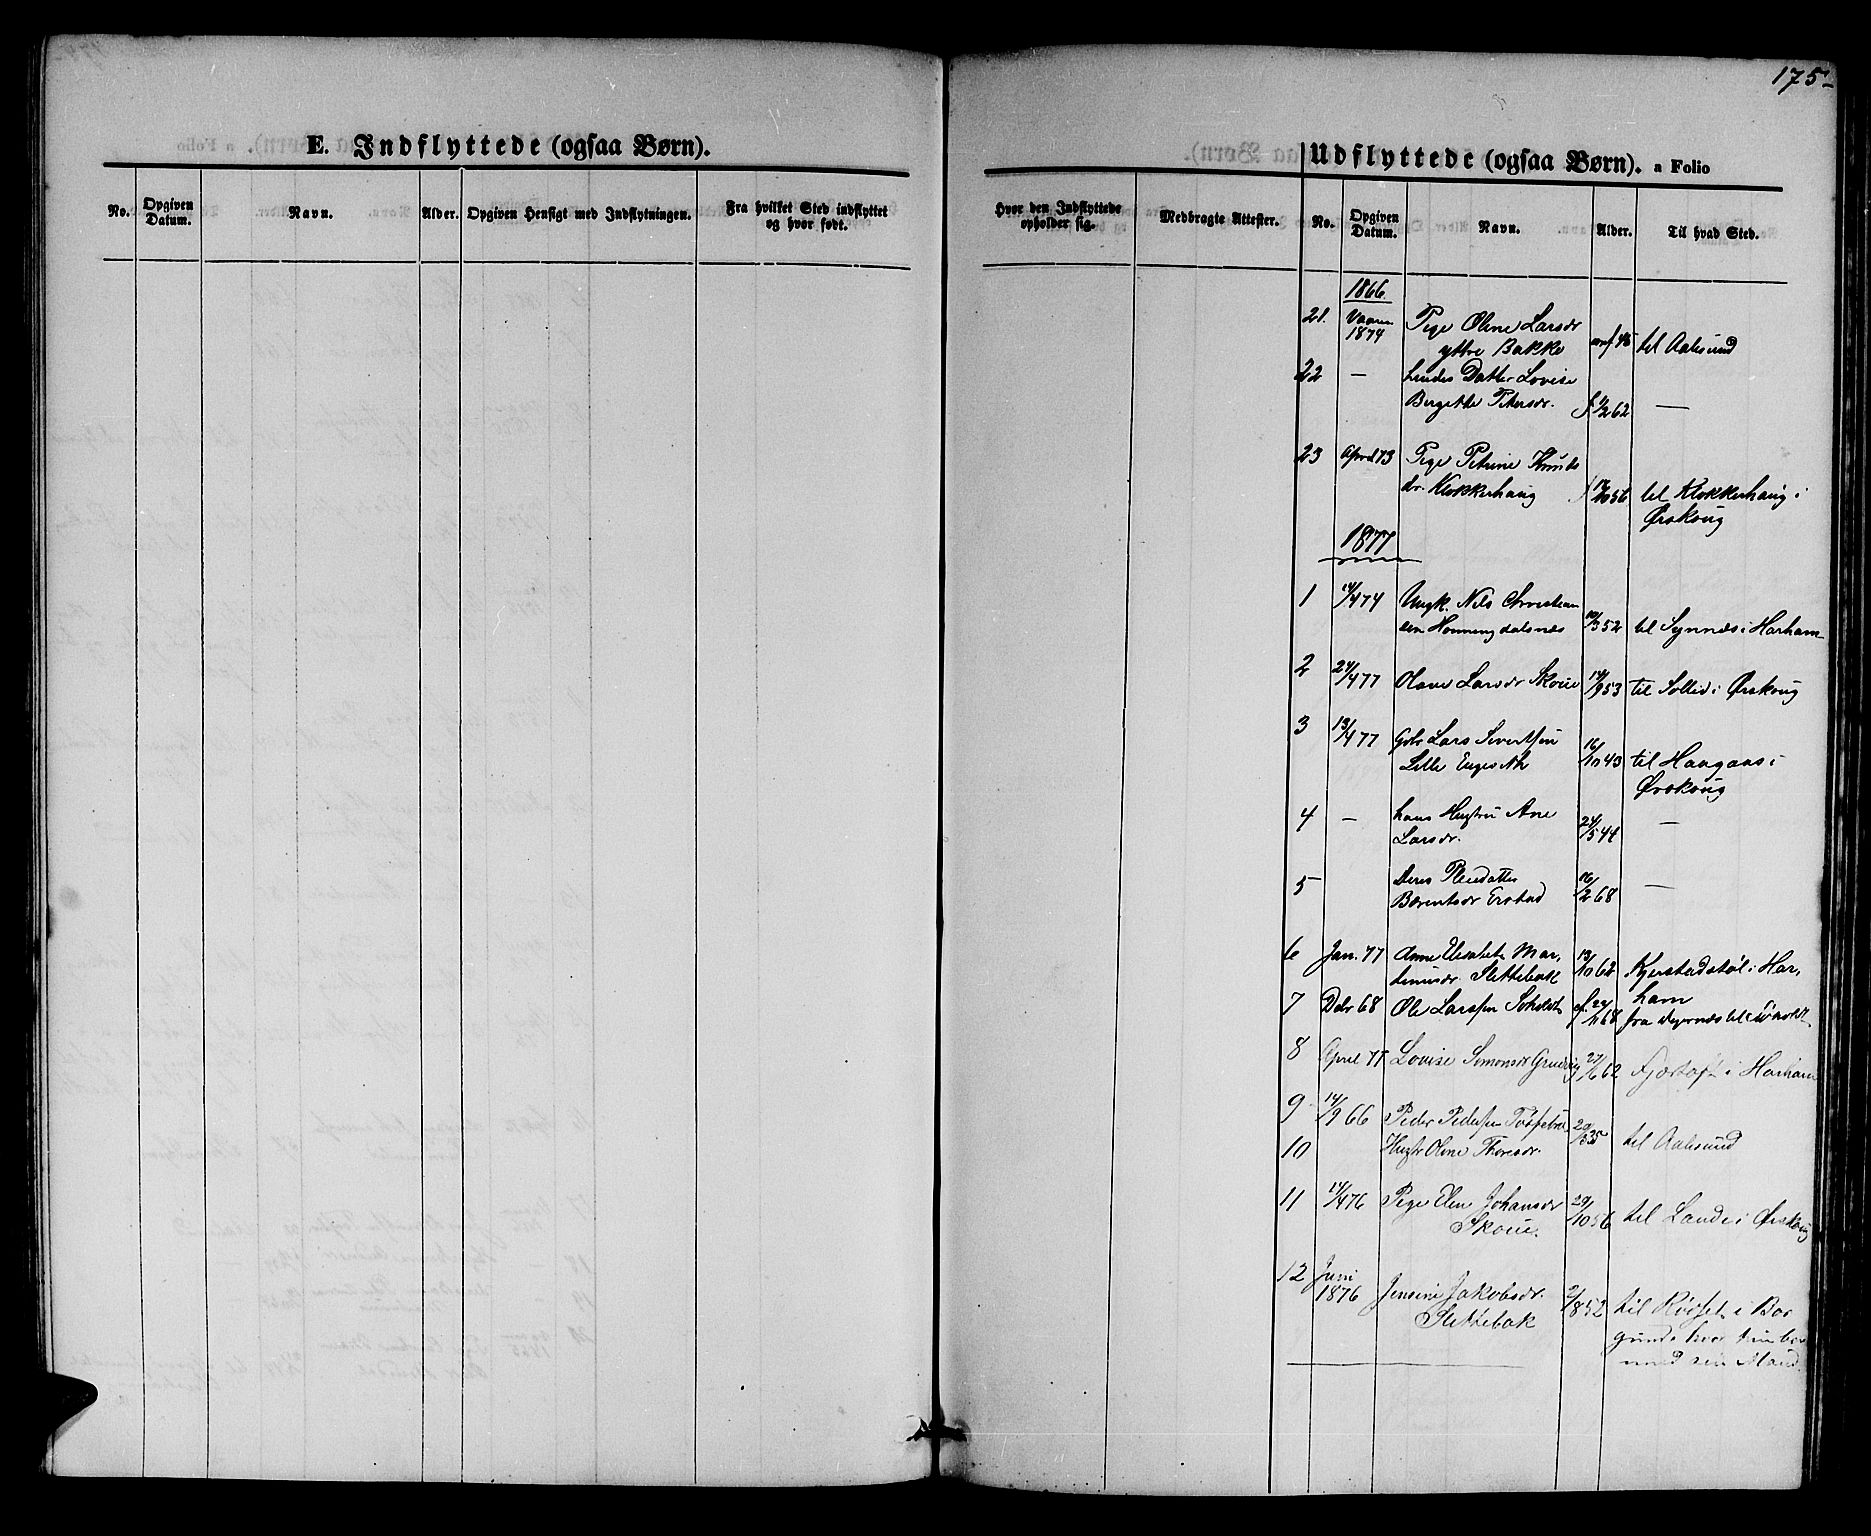 175
E. Indflyttede (ogsaa Børn).
No.
Opgiven Datum.
Navn.
Alder.
Opgiven Hensigt med Indflytningen.
Fra hvilket Sted indflyttet
og hvor født.
Udflyttede (ogsaa Børn). a Folio
Hvor den Indflyttede
opholder sig.
Medbragte Attester.
No.
Opgiven Datum.
Navn.
Alder.
Til hvad Sted.
1866.
21. Vaaren 1874 Pige Oline Larsdr
yttre Bakke 46 til Aalesund
22 — hendes Datter Lovise
Bergitte Petersdr. f 62 —
23 April 73 Pige Petrine Knuds
dr. Klokkerhaug 56 til Klokkerhaug i
Ørskoug
1877
1 14/4 74 Ungk. Nils Christian
sen Honningdalsnæs 10/3 52 til Synnæs i Harham
2 24/4 77 Olave Larsdr Skoue 14/9 53 til Sollid i Ørskoug
3 13/4 77 Gbr Lars Sivertsen
Lille Engeseth 16/10 43 til Haugaas i
Ørskoug
4 — hans Hustru Ane
Larsdr. 24/5 44 —
5 deres Pleiedatter
Berentsdr Erstad 16/2 68 —
6 Jan. 77 Anne Elisabet Mar,
tinusdr Slettebak 13/10 62 Kjerstadstøl i Har,
ham
7 Dcbr 68 Ole Larssen Soholdt f. 24/11 68 fra til Soholdt
8 April 77 Lovise Simonsdr 27/6 62 Fjørtoft i Harham
9 14/9 66 Peder Pedersen 20/3 35 til Aalesund
10 Hustr Oline Thoresdr.
11 14/4 76 Pige Elen Johansdr
Skoue. 29/10 56 til Lande i Ørskoug
12 Juni
1876 Jensine Jakobsdr.
Slettebak 2/8 52 til Røsset i Bor
gund, hvor hun bor
med sin Mand.